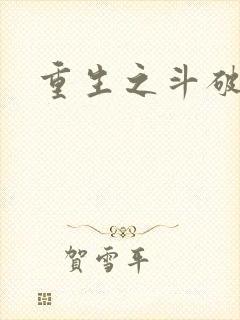 重生之斗破
賀雪平